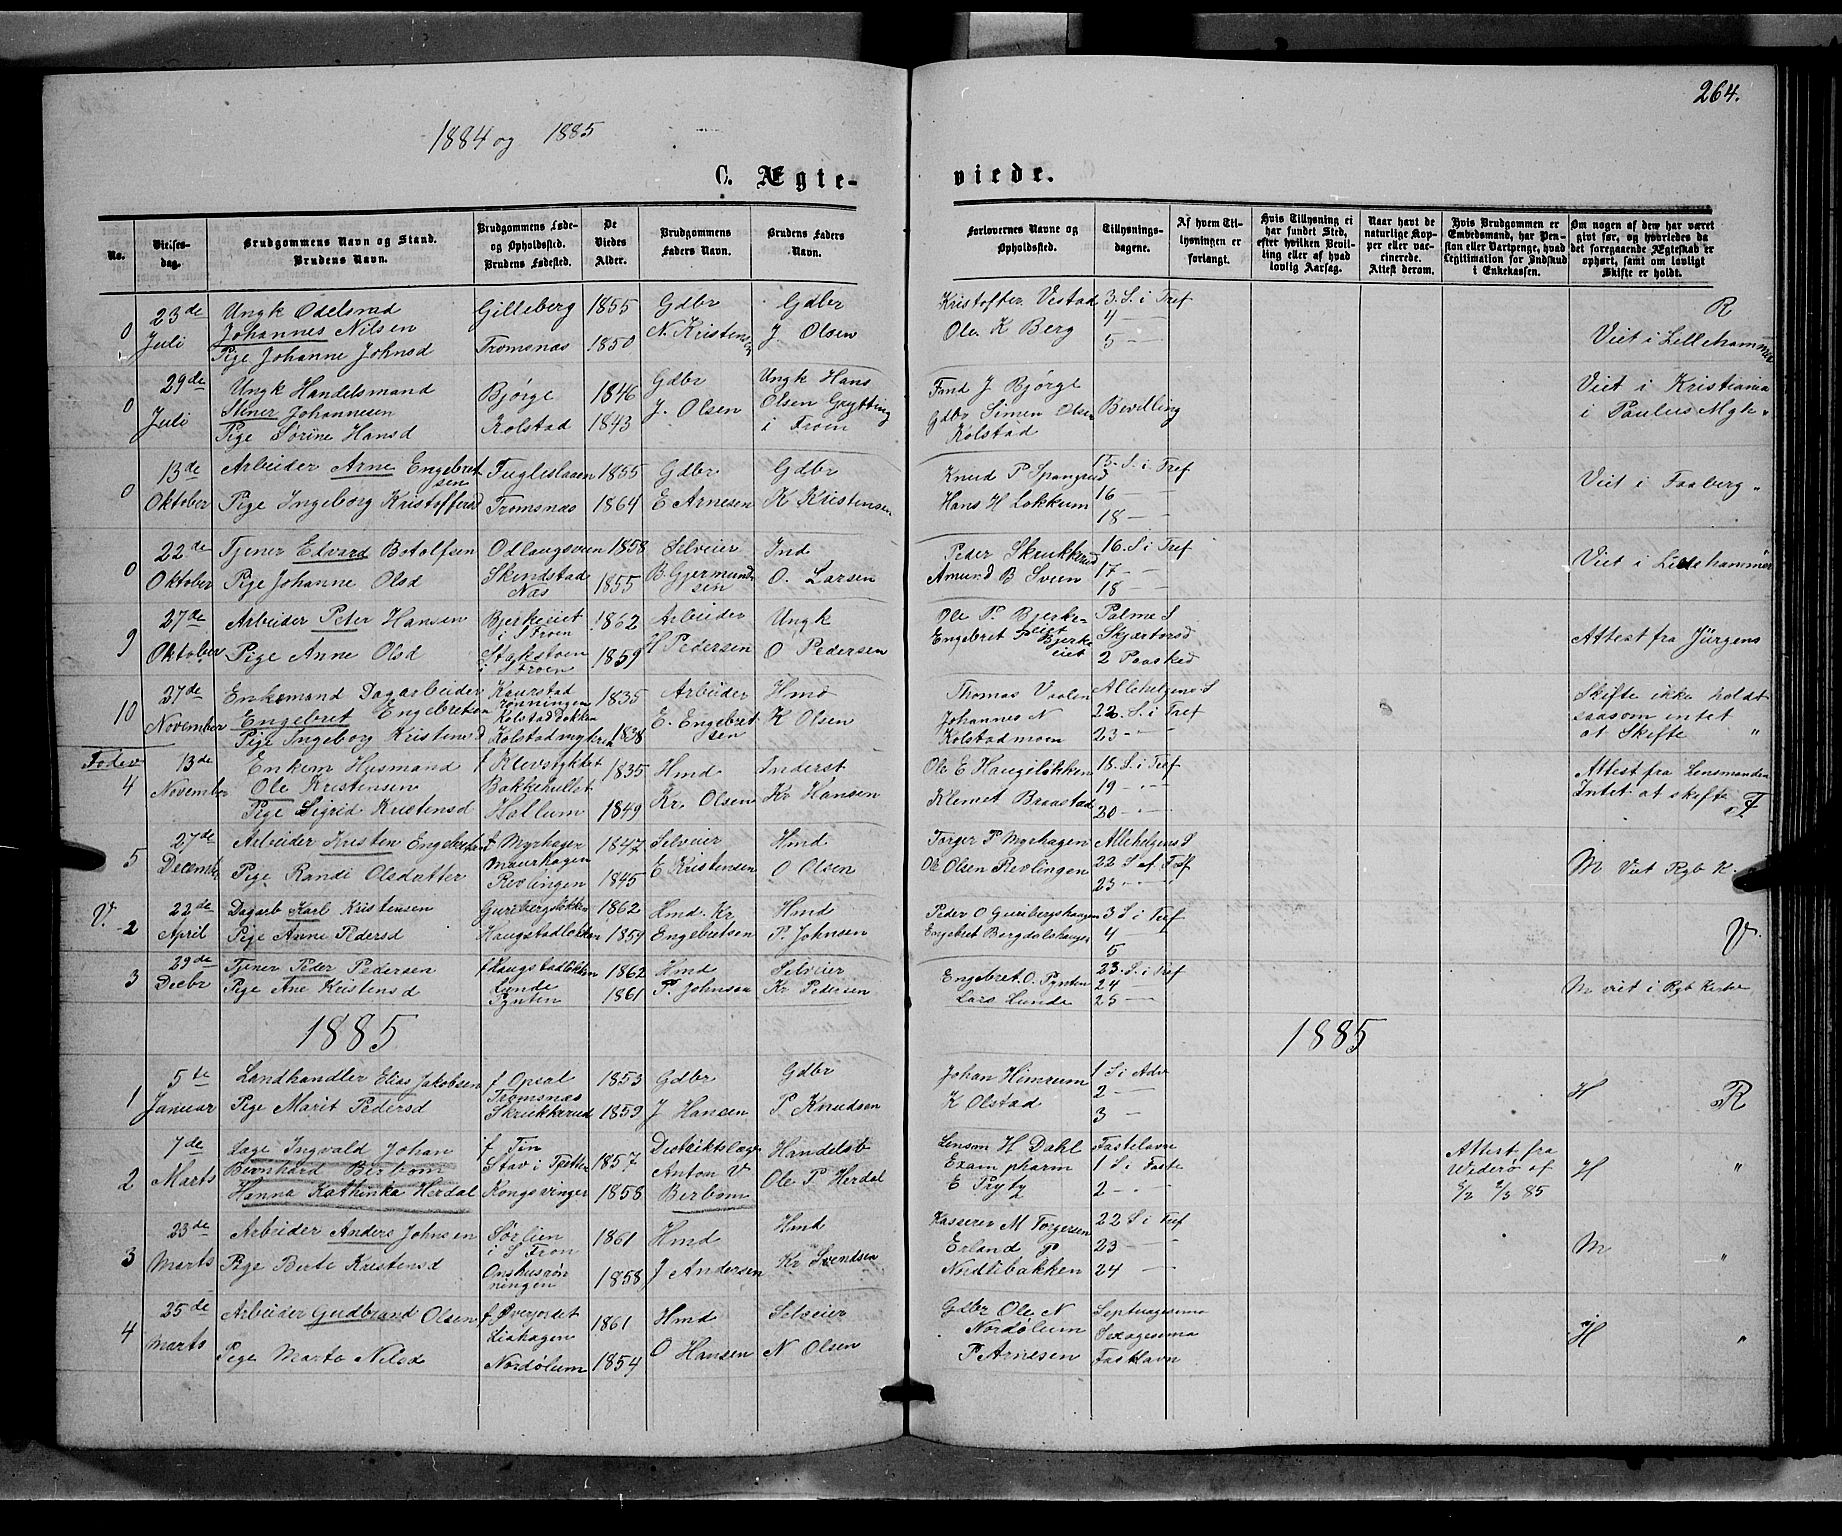 264.
1884 og 1885
C. Ægte-
viede.
No.
Vielses-
dag.
Brudgommens Navn og Stand.
Brudens Navn.
Brudgommens Føde-
og Opholdssted.
Brudens Fødested.
De
Viedes
Alder.
Brudgommens
Faders Navn.
Brudens Faders
Navn.
Forlovernes Navne og
Opholdssted.
Tillysnings-
dagene.
Af hvem Til-
lysningen er
forlangt.
Hvis Tillysning ei
har fundet Sted,
efter hvilken Bevil-
ling eller af hvad
lovlig Aarsag.
Naar havt de
naturlige Kop-
per eller vac-
cinerede.
Attest derom.
Hvis Brudgommen er
Embedsmand, har Pen-
sion eller Vartpenge, hvad
Legitimation for Indskud
i Enkekassen.
Om nogen af dem har været
givt før, og hvorledes da
det foregaaende Ægteskab er
ophørt, samt om lovligt
Skifte er holdt.
0 23de Juli
Ungk Odelsmd
Johannes Nilsen
Pige Johanne Johnsd
Gilleberg 1855
Tromsnæs 1850
Gdbr
N. Kristensen
Gdbr
J. Olsen
Kristoffer Vestad
Ole K Berg
3. S. i Tref
4 —
5 —
R
Viet i Lillehammer
0 29de Juli
Ungk Handelsmand
Stener Johannesen
Pige Sørine Hansd
Bjørge 1846
Kolstad 1843
Gdbr
J. Olsen
Ungk Hans
Olsen Grytting
i Froen
J Bjørge
Gdbr Simen Olsen
Kolstad
Bevilling
Viet i Kristiania
i Paulus Mgh.
0 13de Oktober
Arbeider Arne Engebret
sen
Pige Ingeborg Kristoffersd
Fugleslaaen 1855
Tromsnæs 1864
Gdbr
E Arnesen
Gdbr
K Kristensen
Knud P Spangrud
Hans H Lokkum
15. S. i Tref
16 —
18 —
Viet i Faaberg "
0 22de Oktober
Tjener Edvard Botolfsen
Pige Johanne Olsd
Odlaugsveen 1858
Skindstad
Næs 1855
Selveier
B. Gjermund
sen
Ind
O. Larsen
Peder Skrukkrud
Amund B Sveen
16. S i Tref
17 —
18 —
Viet i Lillehammer
9 27de Oktober
Arbeider Peter Hansen
Pige Anne Olsd
Bjerkeeiet
i S Froen 1862
Stokstoen
i S Froen 1859
Arbeider
H Pedersen
Ungk
O Pedersen
Ole P. Bjerke-
eiet
Engebret Bjerke
eiet
Palme S
Skjærtorsd
2 Paasked
Attest fra Jürgens
10 27de November
Enkemand Dagarbeider
Engebret Engebretsen
Pige Ingeborg Kristensd
Kaurstad
rønningen 1835
Kolstadløkken
Kolstadmykren 1838
Arbeider
E. Engebret
sen
Hmd
K Olsen
Thomas Vaalen
Johannes N
Kolstadmoen
Allehelgens S
22. S. i Tref
23 — —
Skifte ikke holdt
saasom intet
at Skifte "
4 13de November
Enkem Husmand
Ole Kristensen
Pige Sigrid Kristensd
f Klevstykket
Bakkehullet 1835
Hollum 1849
Hmd
Kr. Olsen
Inderst
Kr Hansen
Ole E Haugeløkken
Klemet Braastad
18. S. i Tref
19 — —
20 — —
Attest fra Lensmanden
Intet at skifte F
5 27de Decemb
Arbeider Kristen Engebretsen
Pige Randi Olsdatter
f Myrhagen
Maurhagen 1847
Revlingen 1845
Selveier
E Kristensen
Hmd
O Olsen
Torger P Myrhagen
Ole Olsen Revlingen
Allehelgens S
22 S af Tref
23 — —
M Viet Rgb K.
V. 2 22de April
Dagarb Karl Kristensen
Pige Anne Pedersd
Guribergsløkken 1862
Haugstadløkken 1859
Hmd. Kr
Engebretsen
Hmd
P. Johnsen
Peder O Guribergshaugen
Engebret Bergdalshaugen
3 S. i Tref
4 —
5
V.
3 29de Decbr
Tjener Peder Pedersen
Pige Ane Kristensd
f Haugstadløkken 1862
Lunde
Pynten 1861
Hmd
P. Johnsen
Selveier
Kr Pedersen
Engebret. O. Pynten
Lars Lunde
23. S. i Tref
24 —
25 —
M viet i Rgb Kirke
1885
1885
1 5te Januar
Landhandler Elias Jakobsen
Pige Marit Pedersd
f Opsal 1853
Tromsnæs
Skrukkerud 1859
Gdbr
J Hansen
Gdbr
P Knudsen
Johan Himrum
K Olstad
1 S. i Adv
2 —
3 —
H R
2 7de Marts
Læge Ingvald Johan
Bernhard Birbom
Hanna Kathinka Herdal
f Tin
Stav i Tretten 1857
Kongsvinger 1858
Distriktslæge
Anton V
Birbom
Handelsb
Ole P Herdal
Lensm H Dahl
Exam pharm
E Prytz
Fastelavn
1 S. i Faste
2 — —
Attest fra
Wederø af
6/2 2/3 85
H "
3 23de Marts
Arbeider Anders Johnsen
Pige Berte Kristensd
Sørlien
i S Fron 1861
Onshusrøn
ningen 1858
Hmd
J Andersen
Hmd
Kr Svendsen
Kasserer M Torgersen
Erland P
Nordlibakken
22 S i Tref
23 — —
24 —
M "
4 25de Marts
Arbeider Gudbrand Olsen
Pige Marte Nilsd
f Øverjordet
Liahagen 1861
Nordølum 1854
Hmd
O Hansen
Selveier
N Olsen
Gdbr Ole N
Nordølum
P Arnesen
Septuagesima
Sexagesima
Fastelavn
H "